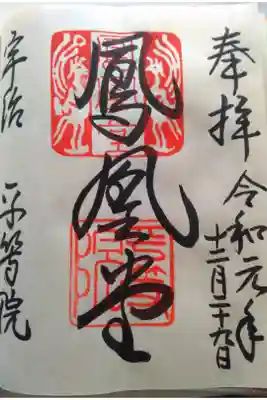 奉拝 令和元年
十二月二十九日
鳳凰堂
宇治 平等院